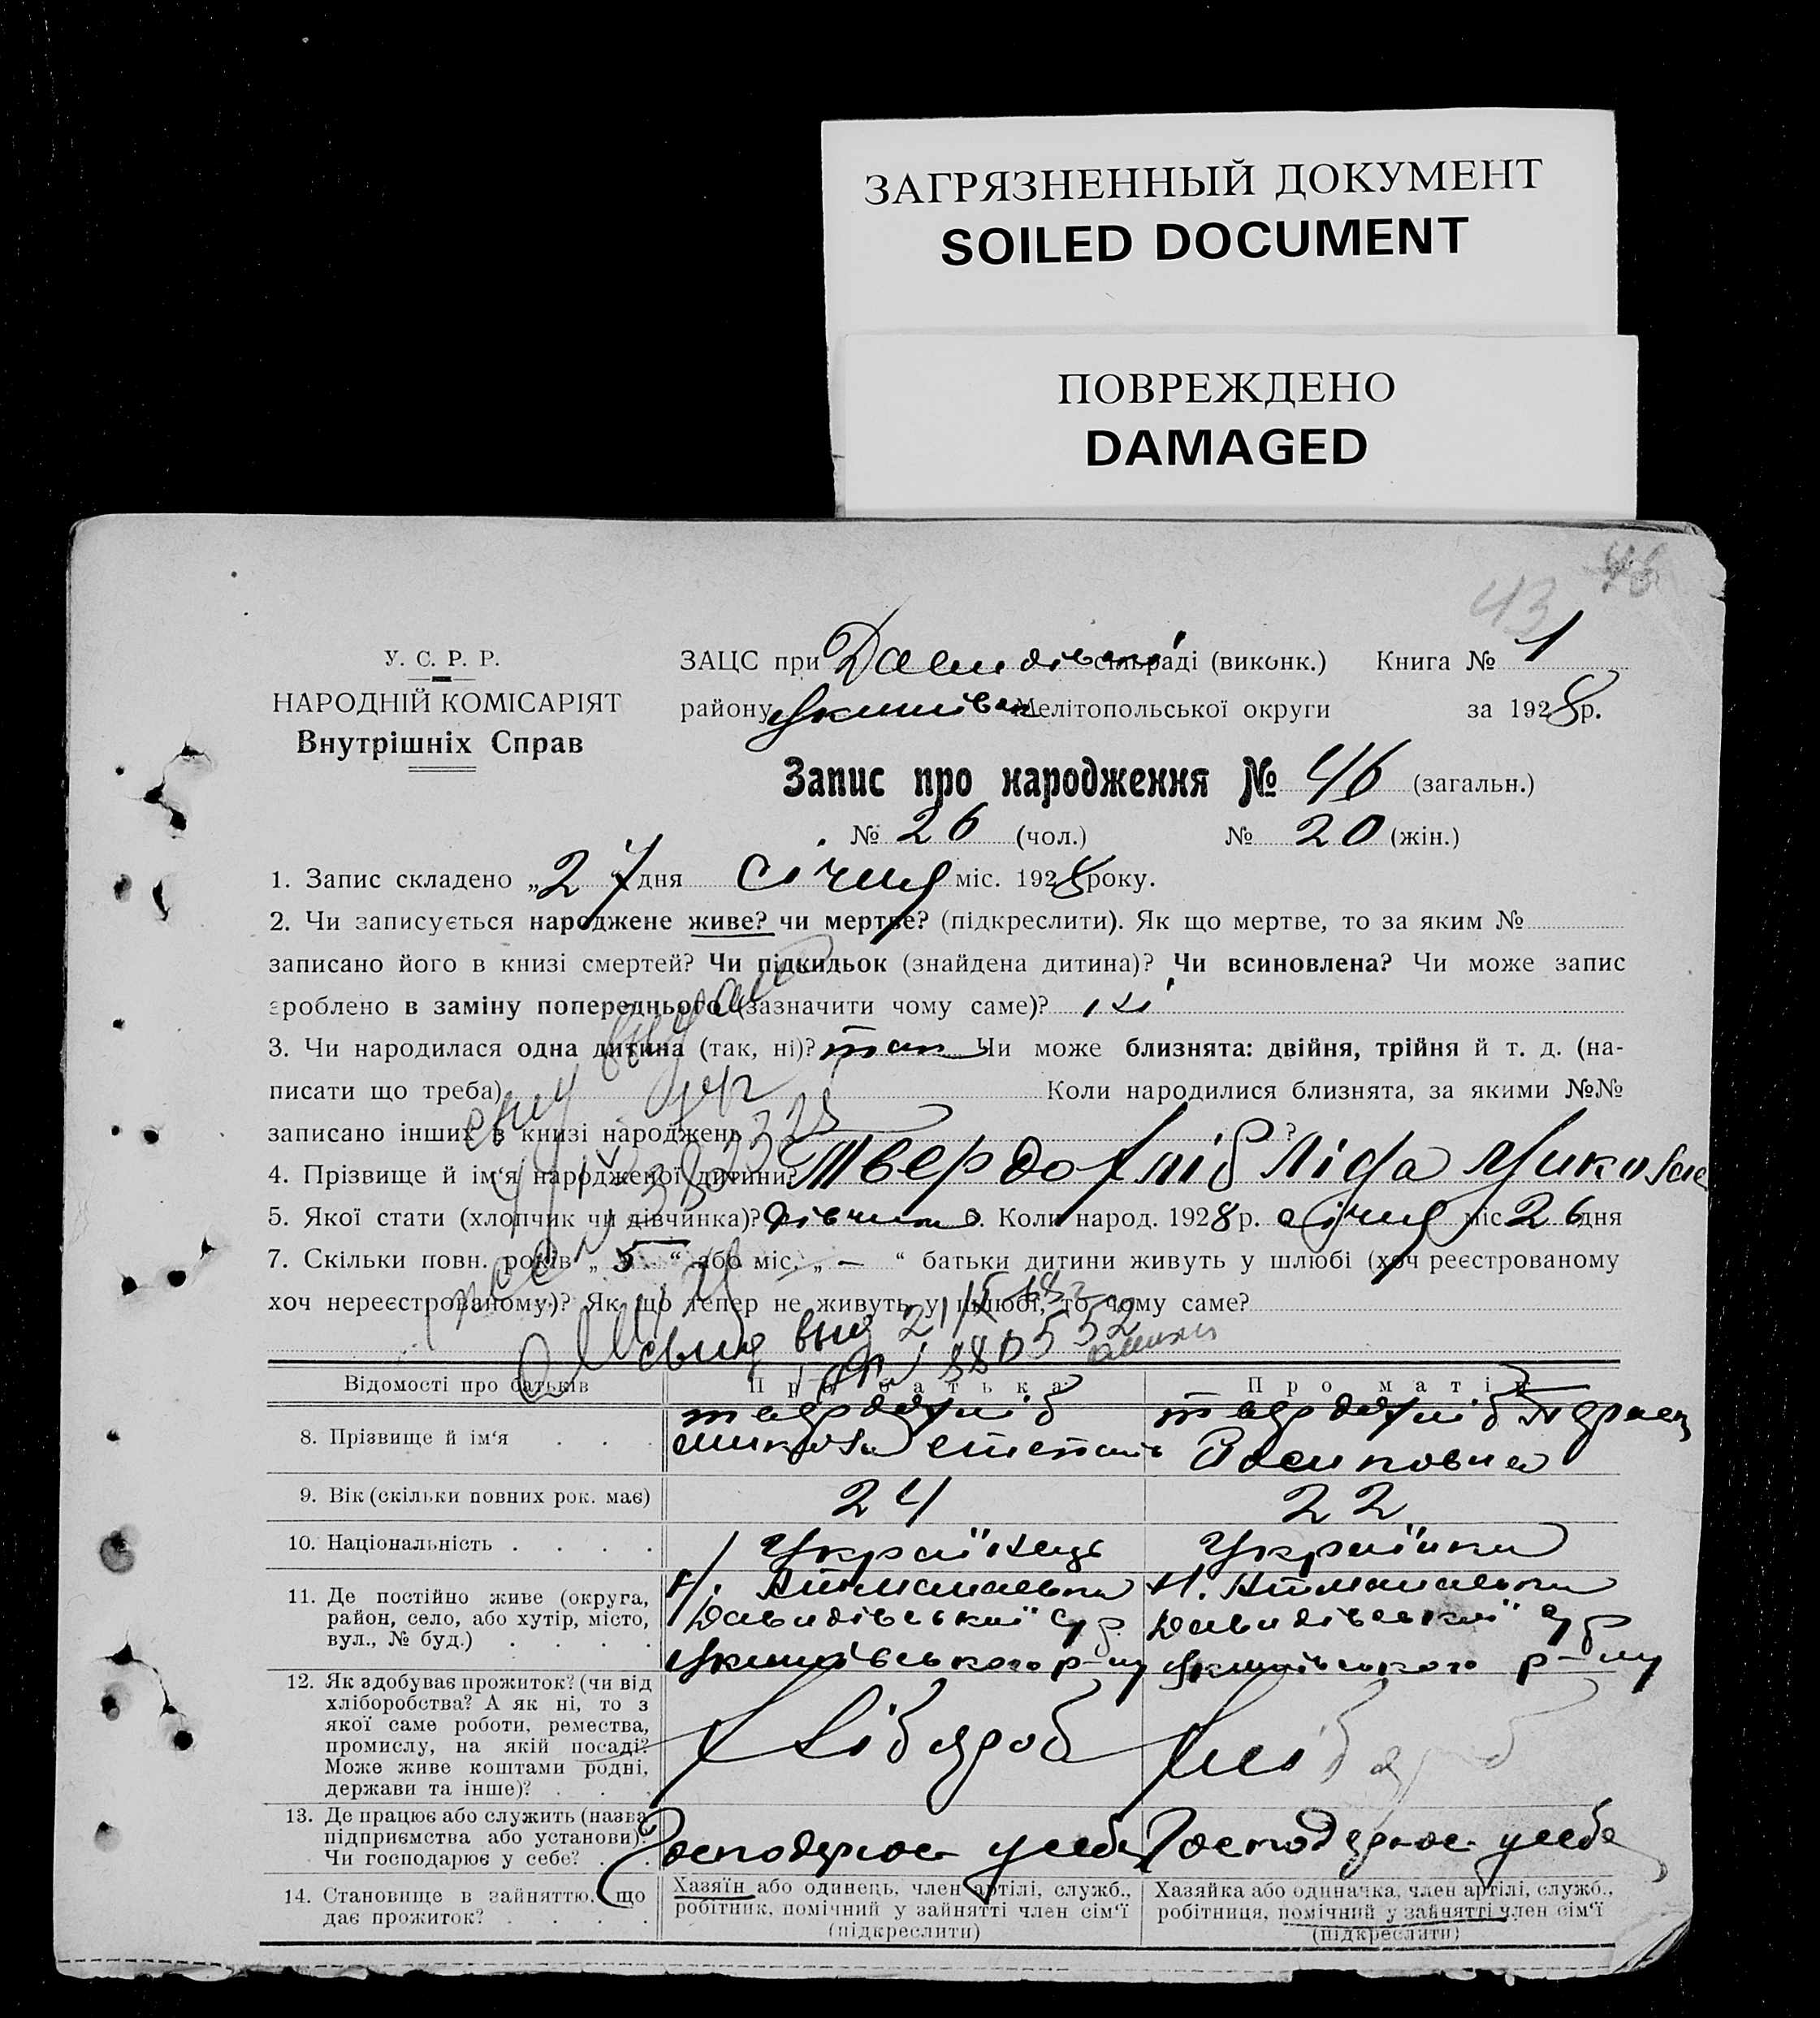 ЗАГРЯЗНЕННЫЙ ДОКУМЕНТ
SOILED DOCUMENT
ПОВРЕЖДЕНО
DAMAGED
43
У. С. Р. Р.
НАРОДНІЙ КОМІСАРІЯТ
Внутрішніх Справ
ЗАЦС при Давидівські сільраді (виконк.) Книга № 1
району Мелітопольської округи за 1928 р.
Запис про народження № 46 (загальн.)
№ 26 (чол.) № 20 (жін.)
1. Запис складено „27 дня січня міс. 1928 року.
2. Чи записується народжене живе? чи мертве? (підкреслити). Як що мертве, то за яким №
записано його в книзі смертей? Чи підкидьок (знайдена дитина)? Чи всиновлена? Чи може запис
зроблено в заміну попереднього (зазначити чому саме)? ні
3. Чи народилася одна дитина (так, ні)? так Чи може близнята: двійня, трійня й т. д. (на-
писати що треба) Коли народилися близнята, за якими №№
записано інших в книзі народжень ?
4. Прізвище й ім‘я народженої дитини? Твердохліб Ліда Микола
5. Якої стати (хлопчик чи дівчинка)? дівчинка 6. Коли народ. 1928 р. січня міс 26 дня
7. Скільки повн. років „ 5 “ або міс. „ — “ батьки дитини живуть у шлюбі (хоч реєстрованому
хоч нереєстрованому)? Як що тепер не живуть у шлюбі, то чому саме?
Відомості про батьків Про батька Про матір
8. Прізвище й ім‘я . . . твердохліб микола степанів твердохліб Осиповна
9. Вік (скільки повних рок. має) 24 22
10. Національність . . . . Українець Українка
11. Де постійно живе (округа,
район, село, або хутір, місто,
вул., № буд.) . . . .
Н. Атманаевка Н. Атманаевка
Давидівської с/р. Давидівської с/р
р-ну р-ну
12. Як здобуває прожиток? (чи від
хліборобства? А як ні, то з
якої саме роботи, ремества,
промислу, на якій посаді?
Може живе коштами родні,
держави та інше)? . . .
хлібороб хлібороб
13. Де працює або служить (назва
підприємства або установи)?
Чи господарює у себе? . .
Господарює у себе Господарює у себе
14. Становище в зайняттю, що
дає прожиток? . . . .
Хазяїн або одинець, член артілі, служб.,
робітник, помічний у зайнятті член сім‘ї
(підкреслити)
Хазяйка або одиначка, член артілі, служб.,
робітниця, помічний у зайнятті член сім‘ї
(підкреслити)